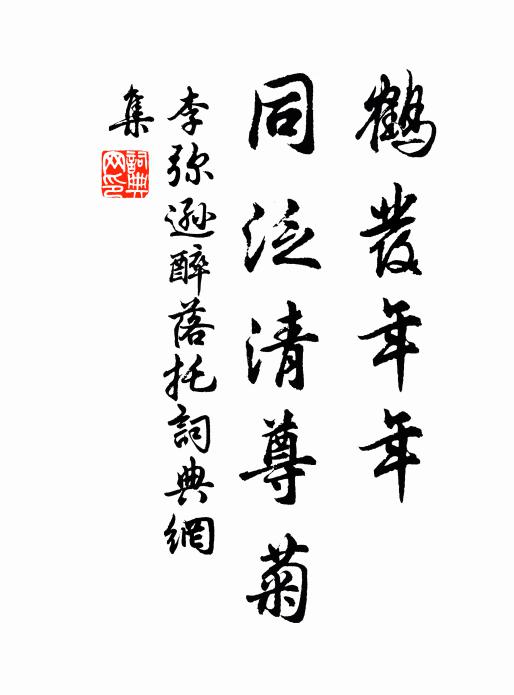 鶴發年年
同泛清尊菊
李弥遜醉落托詞典網
集
詞典
网印